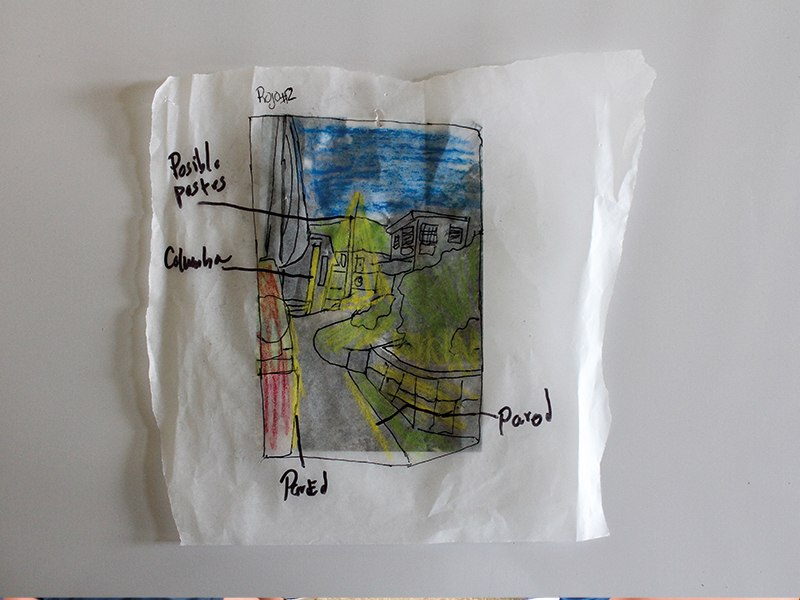 Rojo#2
Posible
postes
Columna
Pared
Pared